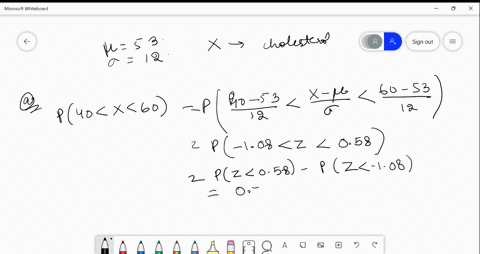 Microsoft Whiteboard
Sign out
μ = 53 X → cholesterol
σ = 12
a) P(40 < X < 60) = P(40-53/12 < X-μ/σ < 60-53/12)
= P(-1.08 < Z < 0.58)
= P(Z < 0.58) - P(Z < -1.08)
= 0.